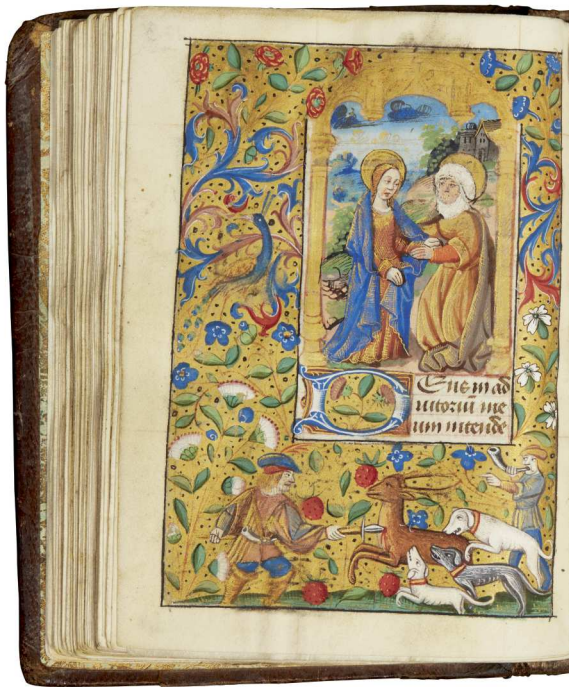 Deus in ad
iutoriũ me
um intende